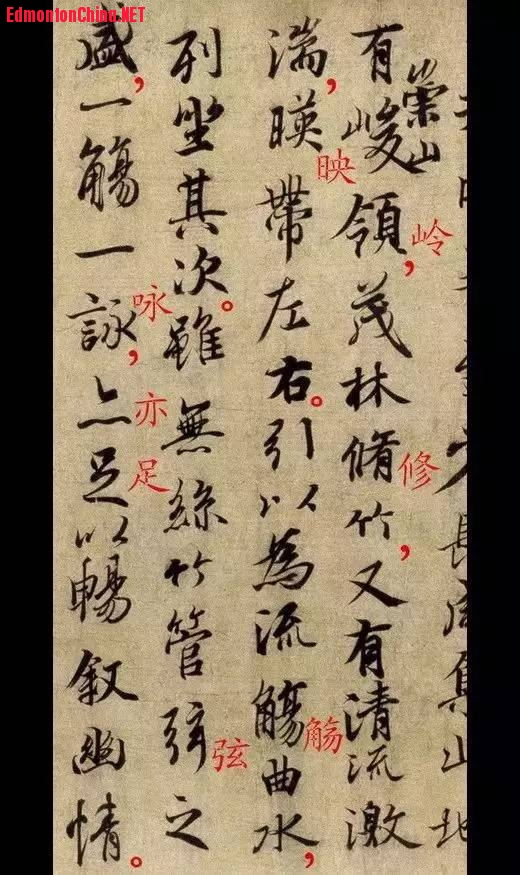 EdmontonChina.NET
有崇山峻領，茂林脩竹，又有清流激
岭
修
湍，暎帶左右。引以為流觴曲水，
映
觞
列坐其次。雖無絲竹管弦之
弦
盛，一觴一詠，亦足以暢叙幽情。
咏
亦
足